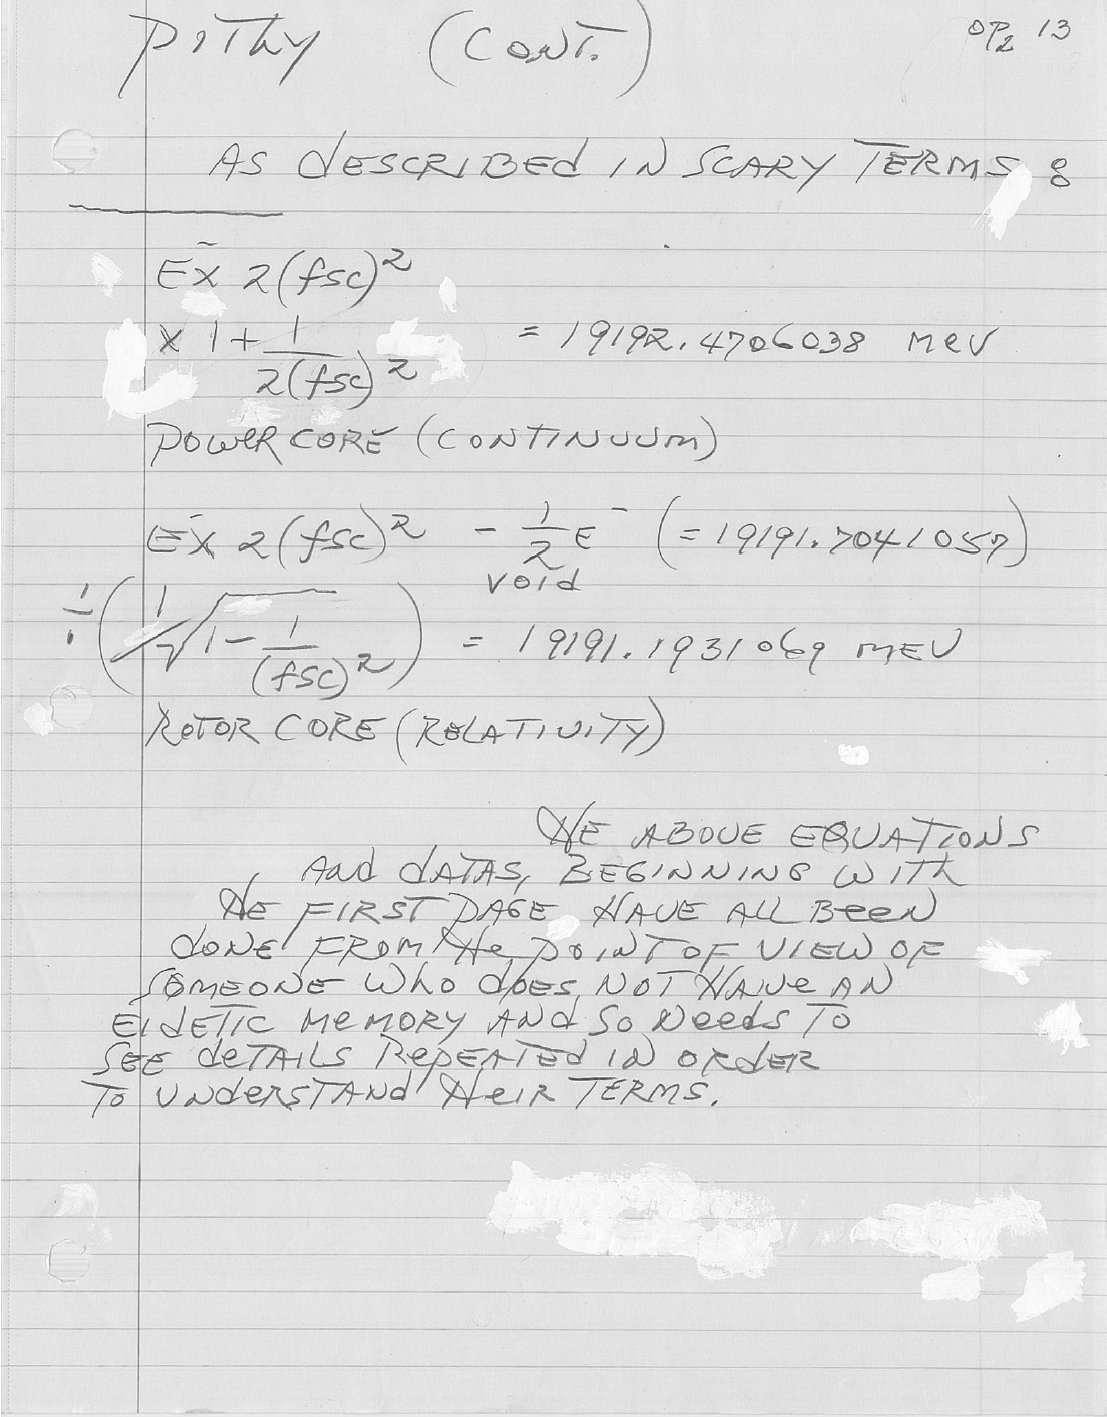 PITHY (CONT.) OP2 13
AS DESCRIBED IN SCARY TERMS :
E⁻ x 2(fsc)²
x 1 + 1/2(fsc)² = 19192.4706038 MeV
POWER CORE (CONTINUUM)
E⁻ x 2(fsc)² - 1/2 E⁻ (= 19191.7041057)
VOID
÷ (1/√1 - 1/(fsc)²) = 19191.1931069 MEV
ROTOR CORE (RELATIVITY)
THE ABOVE EQUATIONS
AND DATAS, BEGINNING WITH
THE FIRST PAGE HAVE ALL BEEN
DONE FROM THE POINT OF VIEW OF
SOMEONE WHO DOES NOT HAVE AN
EIDETIC MEMORY AND SO NEEDS TO
SEE DETAILS REPEATED IN ORDER
TO UNDERSTAND THEIR TERMS.